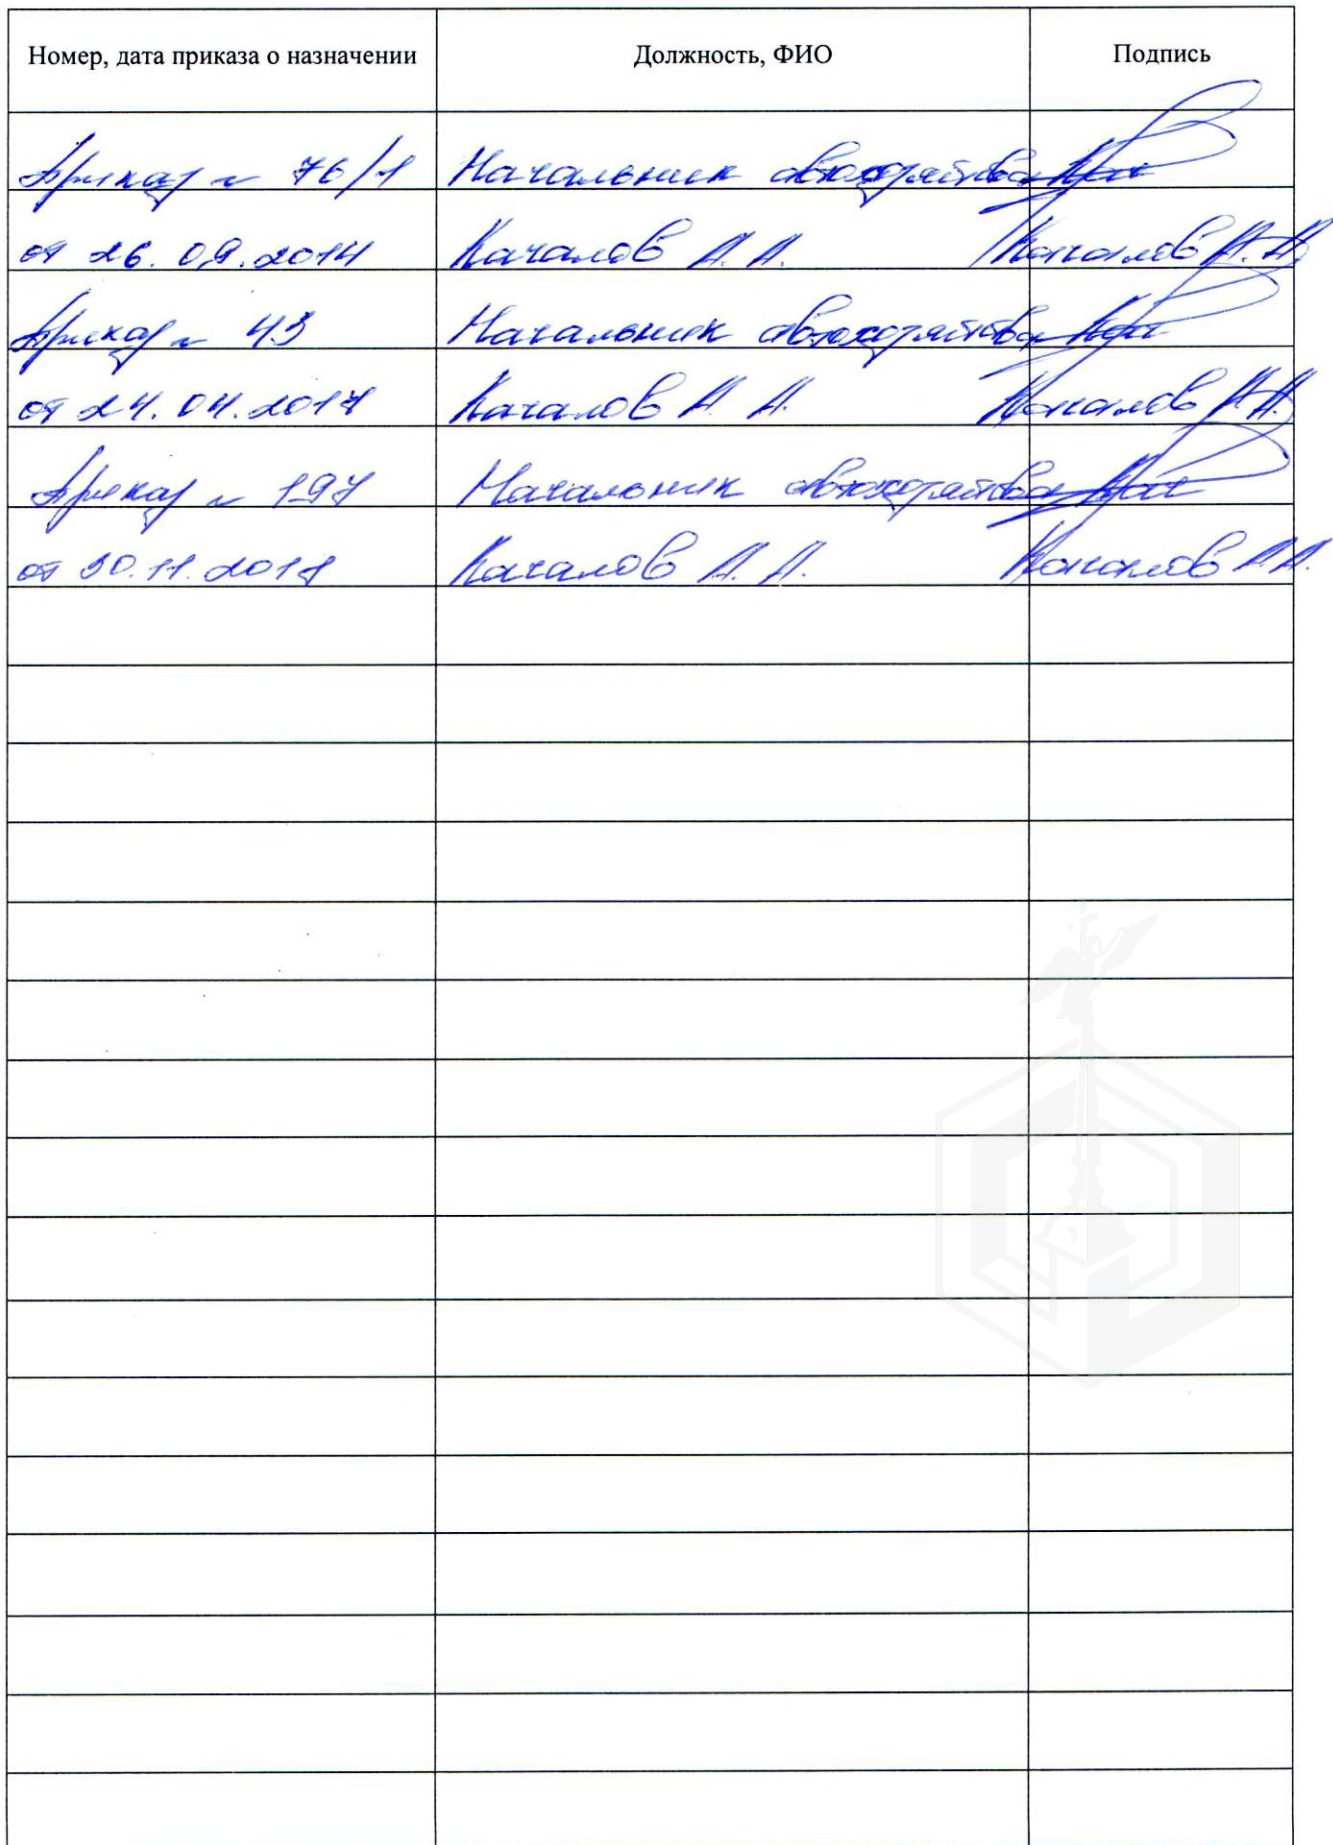 Номер, дата приказа о назначении Должность, ФИО Подпись
Приказ № 76/1 Начальник автохозяйства
от 26.09.2014 Качалов А.А. Качалов А.А.
Приказ № 43 Начальник автохозяйства
от 24.04.2017 Качалов А.А. Качалов А.А.
Приказ № 197 Начальник автохозяйства
от 30.11.2017 Качалов А.А. Качалов А.А.